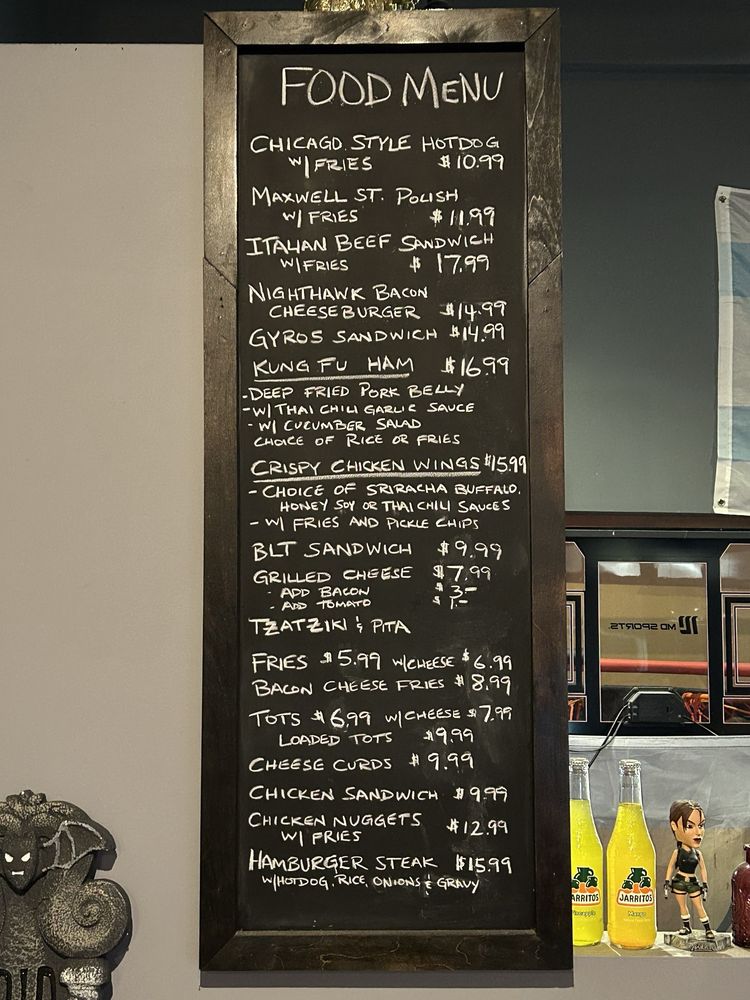 FOOD MENU
CHICAGO STYLE HOTDOG
W/ FRIES $10.99
MAXWELL ST. POLISH
W/ FRIES $11.99
ITALIAN BEEF SANDWICH
W/FRIES $17.99
NIGHTHAWK BACON
CHEESEBURGER $14.99
GYROS SANDWICH $14.99
KUNG FU HAM $16.99
-DEEP FRIED PORK BELLY
-W/ THAI CHILI GARLIC SAUCE
-W/ CUCUMBER SALAD
CHOICE OF RICE OR FRIES
CRISPY CHICKEN WINGS $15.99
- CHOICE OF SRIRACHA BUFFALO,
HONEY SOY OR THAI CHILI SAUCES
- W/ FRIES AND PICKLE CHIPS
BLT SANDWICH $9.99
GRILLED CHEESE $7.99
- ADD BACON $3-
- ADD TOMATO $1.-
TZATZIKI & PITA
FRIES $5.99 W/CHEESE $6.99
BACON CHEESE FRIES $8.99
TOTS $6.99 W/CHEESE $7.99
LOADED TOTS $9.99
CHEESE CURDS $9.99
CHICKEN SANDWICH $9.99
CHICKEN NUGGETS
W/ FRIES $12.99
HAMBURGER STEAK $15.99
W/HOTDOG, RICE, ONIONS & GRAVY
MD SPORTS
JARRITOS
Pineapple
JARRITOS
Mango